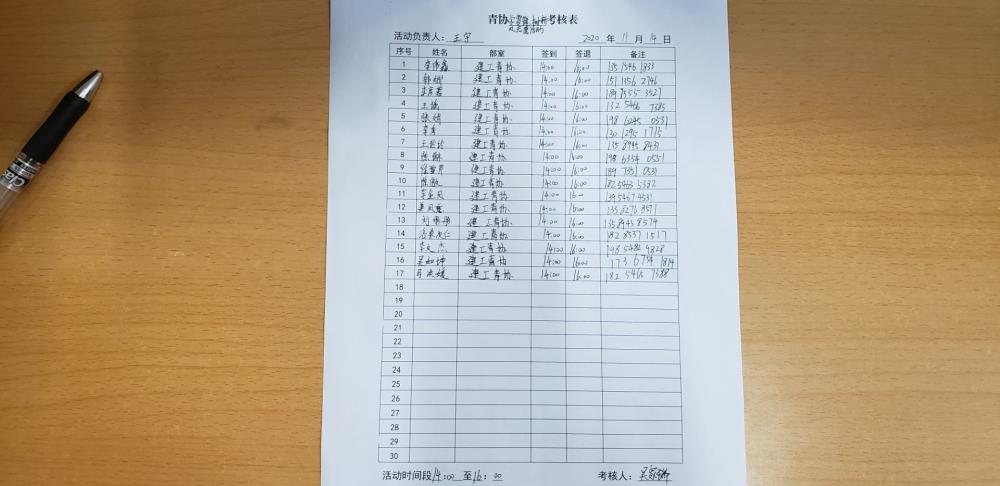 青协 考核表
活动负责人： 王宇 2020 年 11 月 14 日
序号 姓名 部室 签到 签退 备注
1 建工青协 14:00 16:00
2 建工青协 14:00 16:00 151 1356 2746
3 建工青协 14:00 16:00 189 7355 3527
4 王 建工青协 14:00 16:00 132 5466 7385
5 张 建工青协 14:00 16:00 198 6245 0531
6 李 建工青协 14:00 16:00 130 1295 1715
7 王 建工青协 14:00 16:00 135 8945 8431
8 张琳 建工青协 14:00 16:00 198 6354 0551
9 建工青协 14:00 16:00 189 7351 0531
10 陈 建工青协 14:00 16:00 182 5463 5382
11 李金凤 建工青协 14:00 16:00 139 5467 4531
12 建工青协 14:00 16:00 135 8276 8571
13 刘 建工青协 14:00 16:00 135 8943 8574
14 建工青协 14:00 16:00 182 8537 1517
15 李文杰 建工青协 14:00 16:00 198 5482 4828
16 吴如坤 建工青协 14:00 16:00 173 6754 1814
17 建工青协 14:00 16:00 182 5466 7388
18
19
20
21
22
23
24
25
26
27
28
29
30
活动时间段 14:00 至 16:00 考核人：